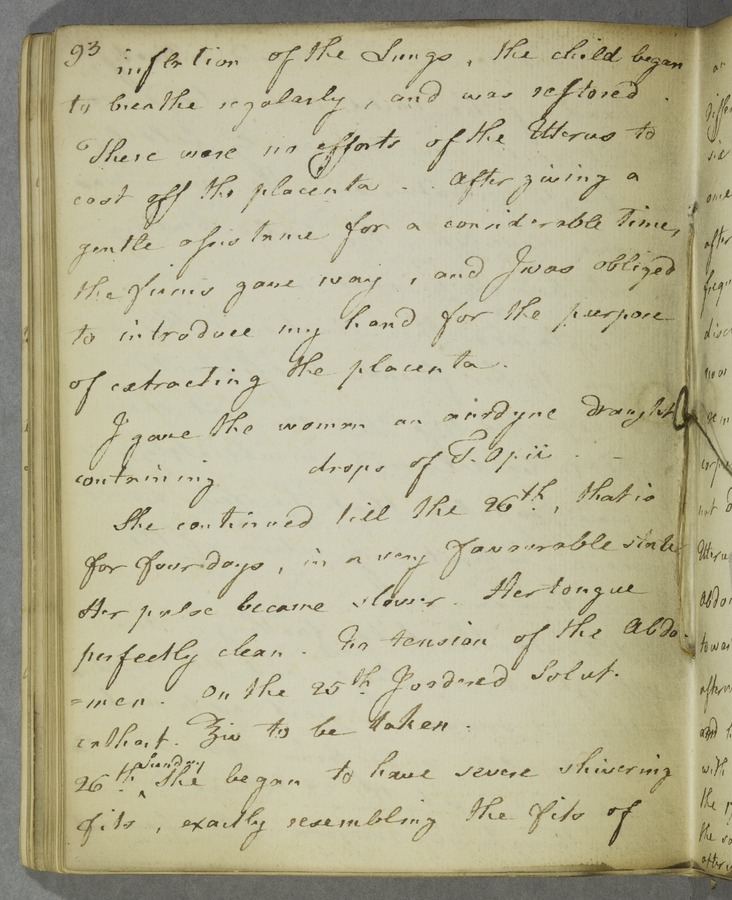 93
inflation of the Lungs, the child began
to breathe regularly, and was restored.
There were no efforts of the Uterus to
cast off the placenta. After giving a
gentle assistance for a considerable time,
the funis gave way, and I was obliged
to introduce my hand for the purpose
of extracting the placenta.
I gave the woman an anodyne draught
containing drops of T. Opii.
She continued till the 26th, that is
for four days, in a very favourable state
Her pulse became slower. Her tongue
perfectly clean. No tension of the Abdo-
=men. On the 25th I ordered Solut.
cathart. ℥iv to be taken.
26th Sunday She began to have severe shivering
fits, exactly resembling the fits of